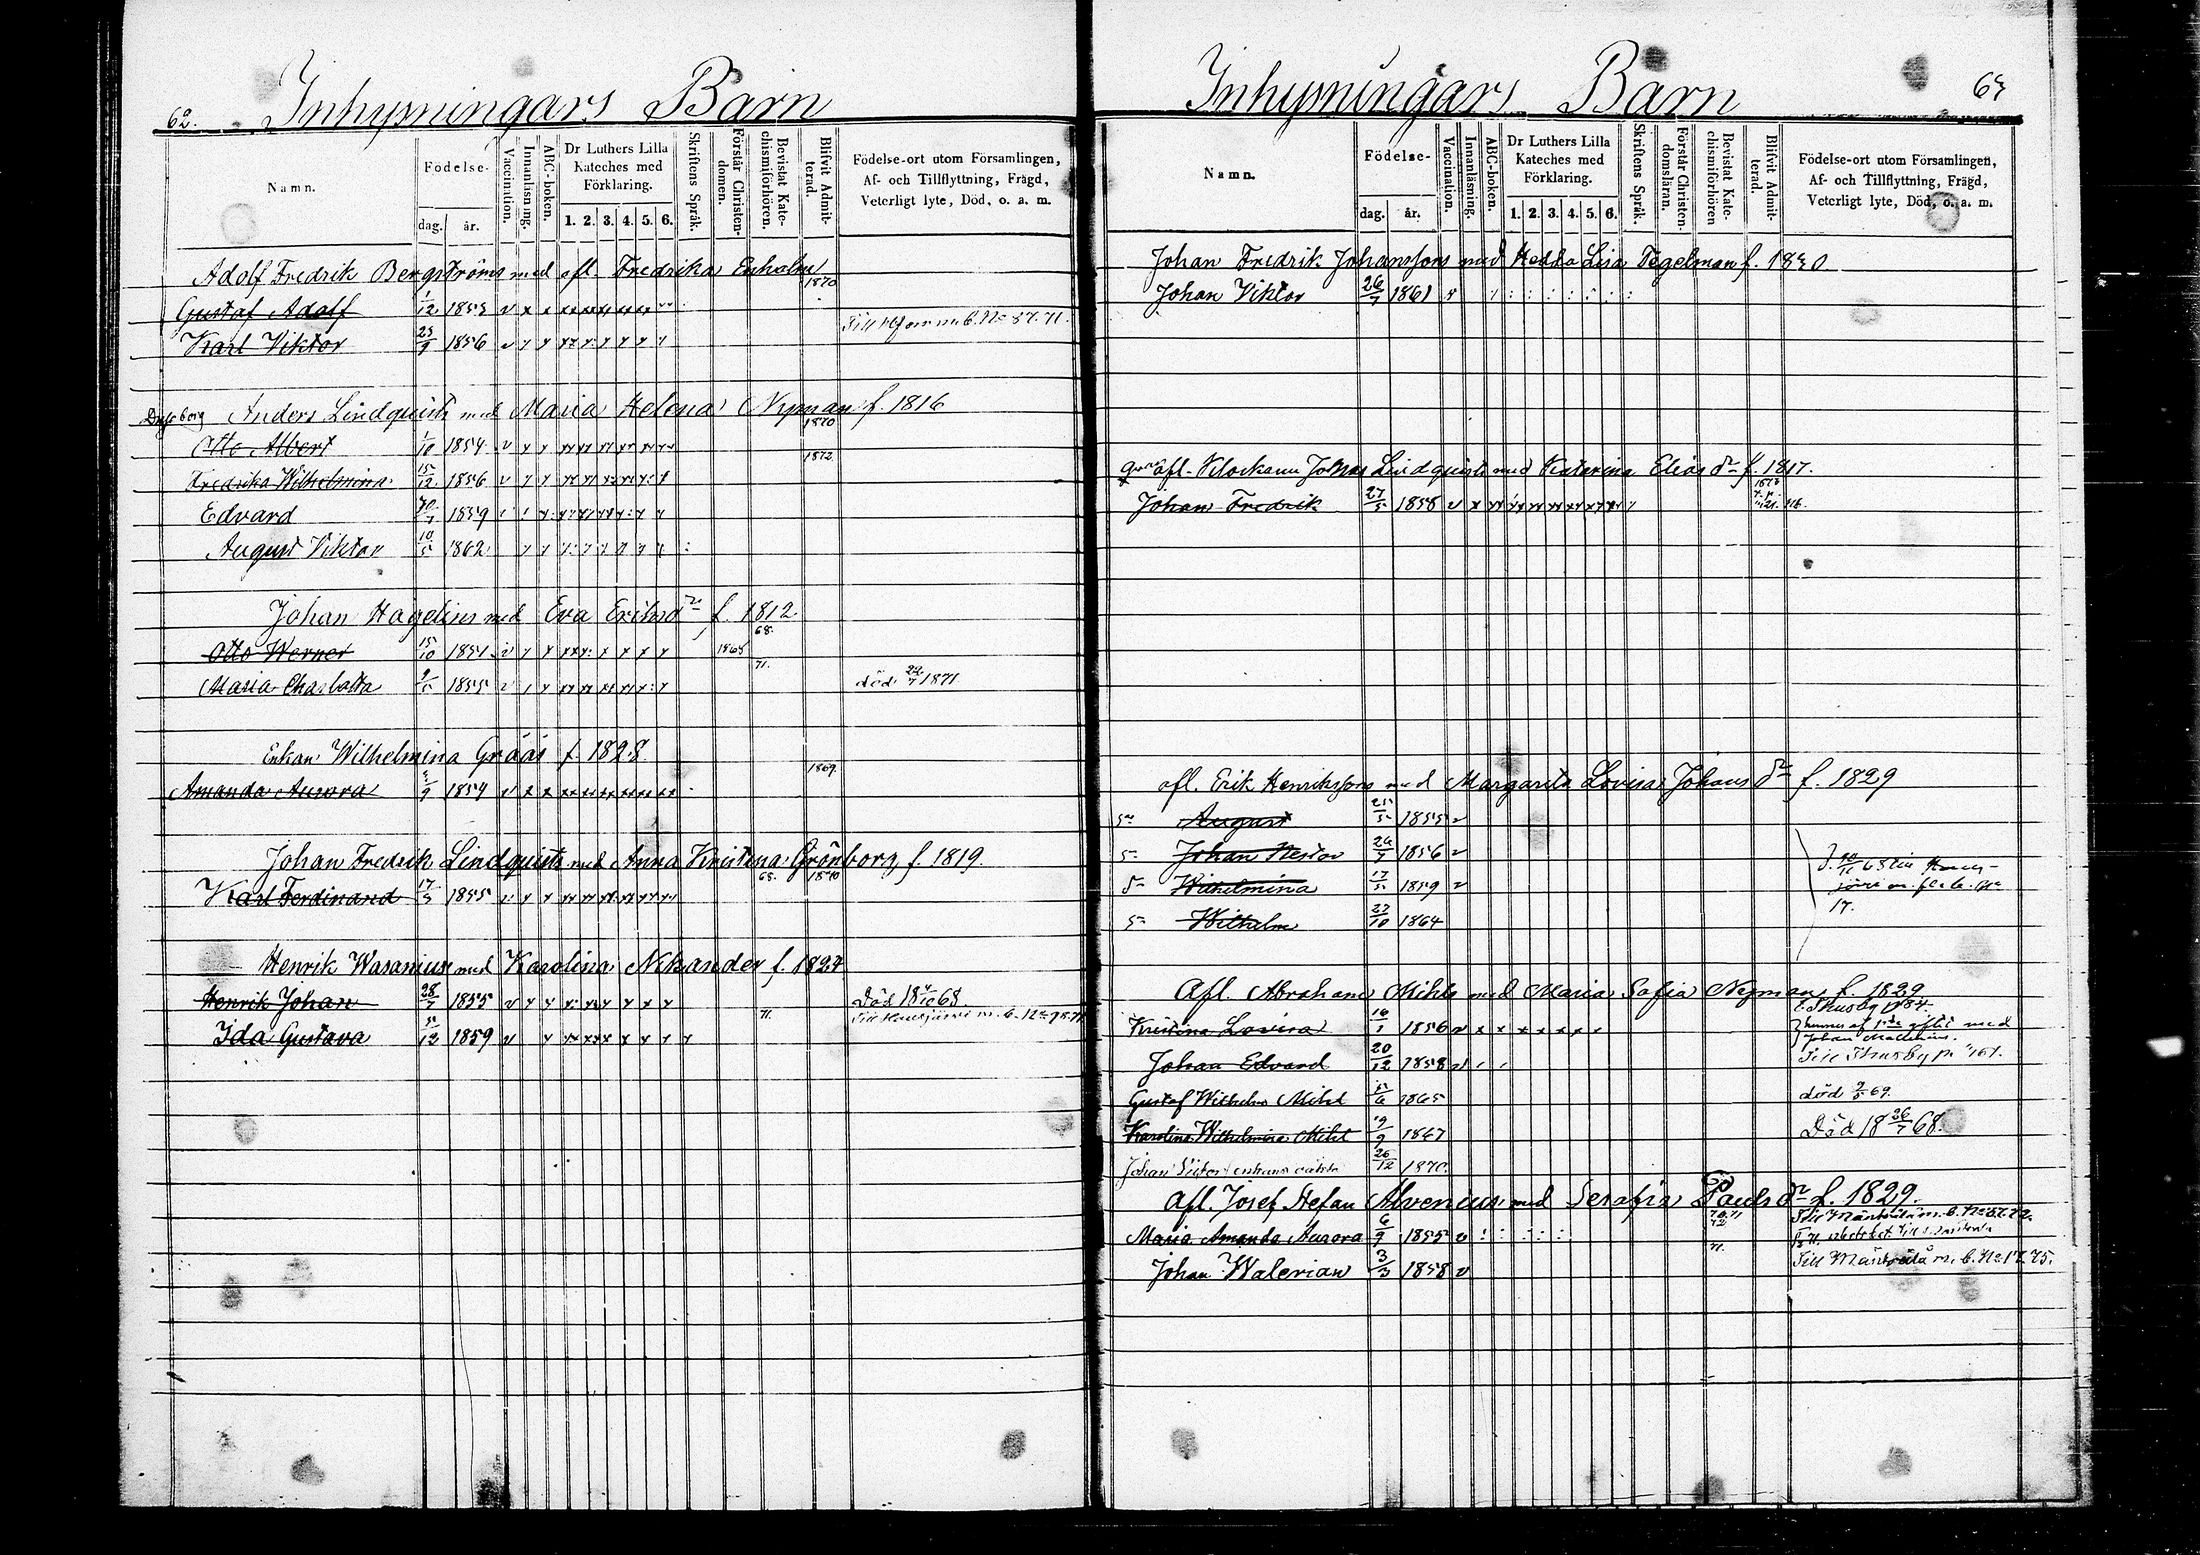 62. Inhysningars Barn
Namn. Födelse- dag. år. Vaccination. Innanläsning. ABC-boken. Dr Luthers Lilla Kateches med Förklaring. 1. 2. 3. 4. 5. 6. Skriftens Språk. Förstår Christendomen. Bevistat Katechismiförhören. Blifvit Admitterad. Födelse-ort utom Församlingen, Af- och Tillflyttning, Frägd, Veterligt lyte, Död, o. a. m.
Adolf Fredrik Bergströms med afl. Fredrika Enholm
1870
Gustaf Adolf 1/12 1853
Karl Viktor 23/9 1856
Anders Lindquists med Maria Helena Nyman f. 1816
1870
Otto Albert 1/10 1854
1872
Fredrika Wilhelmina 15/12 1856
Edvard 1859
August Viktor 10/5 1862
Johan Hagelius med Eva Eriksdr f. 1812
68.
Otto Werner 15/10 1851 1868
71.
Maria Charlotta 1855 död 22/7 1871
Enkan Wilhelmina Grääs f. 1828
1869.
Amanda Aurora 1854
Johan Fredrik Lindquists med Anna Kristina Grönborg f. 1819.
68. 1870
Karl Ferdinand 17/3 1855
Henrik Wasanius med Karolina Nikander f. 1827
Henrik Johan 28/7 1855 Död 68.
71.
Ida Gustava 5/12 1859
Inhysningars Barn 63
Namn. Födelse- dag. år. Vaccination. Innanläsning. ABC-boken. Dr Luthers Lilla Kateches med Förklaring. 1. 2. 3. 4. 5. 6. Skriftens Språk. Förstår Christendomsläran. Bevistat Katechismiförhören Blifvit Admitterad. Födelse-ort utom Församlingen, Af- och Tillflyttning, Frägd, Veterligt lyte, Död, o. a. m.
Johan Fredrik Johanssons med Hedda Lisa Tegelman f. 1830
Johan Viktor 26/7 1861
afl. Klockaren Johas Lindquists med Katarina Eliasdr f. 1817.
Johan Fredrik 27/5 1858
afl. Erik Henrikssons med Margareta Lovisa Johansdr f. 1829
August 25/5 1855
Johan Nestor 26/7 1856
Wilhelmina 17/5 1859
17.
Wilhelm 23/10 1864
Afl. Abraham Mihls med Maria Sofia Nyman f. 1829
Kristina Lovisa 1856
Johan Edvard 20/12 1858
Gustaf Wilhelm Mihl 1865 död 69.
Karolina Wilhelmina Mihl 19/9 1867 Död 18 26/7 68.
Johan Victor 26/12 1870.
Afl. Josef Stefan Alvenius med Serafia Paulsdr f. 1829.
Maria Amanda Aurora 6/9 1855
71.
Johan Walerian 3/3 1858 Till Mäntsälä m. b. No 17. 75.